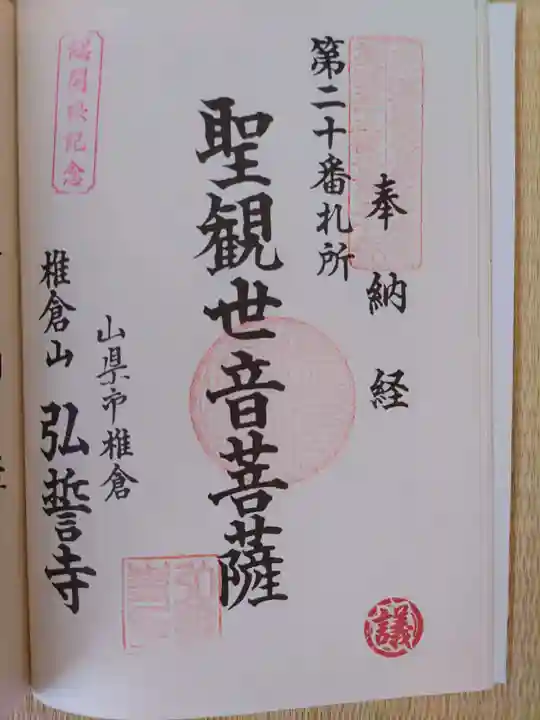 奉納経
第二十番札所
聖観世音菩薩
山県市椎倉
椎倉山 弘誓寺
総開帳記念
議